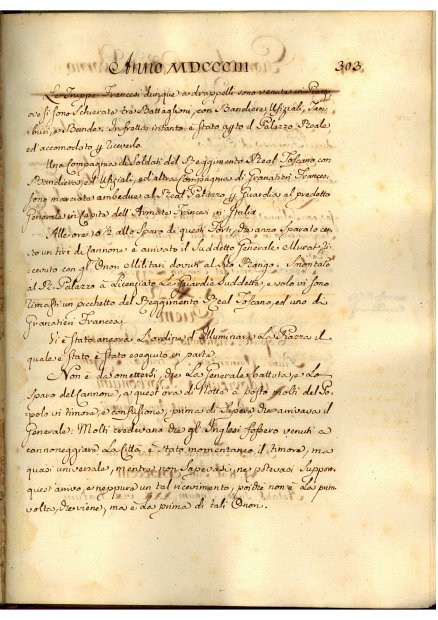 Anno MDCCCIII 303
Le Truppe Francesi dunque a drappelli sono venute in
ove si sono Schierate tre Battaglioni, con Bandiera Ufiziali, Tam-
buri, e Banda. In frotta intanto, è stato il Palazzo Reale
ed accomodato riceverlo.
Una Compagnia di Soldati del Reggimento Real Toscano con
Bandiera, ed Ufiziali, ed altra Compagnia di Granatieri Francesi,
sono marciate ambedue al Real Palazzo Guardia al predetto
Generale in Capite dell'Armate Francesi in Italia
Alle ore allo Sparo di questi Forti, che anno Sparato con-
to un tiri di Cannone è arrivato il Suddetto Generale Murat, Ri-
cevuto con gl'Onori Militari dovuti al Suo Rango. Smontato
al Rl. Palazzo à Licenziato Le Guardie Suddette, e solo vi sono
rimasti un picchetto del Reggimento Real Toscano, ed uno di
Granatieri Francesi
Vi è stato ancora L'ordine d'Illuminare La Piazza il
quale è stato è stato eseguito in parte.
Non è da omettersi, che La Generale battuta, e Lo
Sparo del Cannone, a quest'ora di Notte à posto molti del Po-
polo in timore, e confusione, prima di Sapere che arrivava il
Generale: Molti credevano che gl'Inglesi fossero venuti a
cannoneggiare La Città, è stato momentaneo il timore, ma
quasi universale, mentre non Sapevasi, ne potevasi Suppor
quest'arrivo, e neppure un tal ricevimento, poiche non è La prima
volta, che viene, ma è La prima di tali Onori.